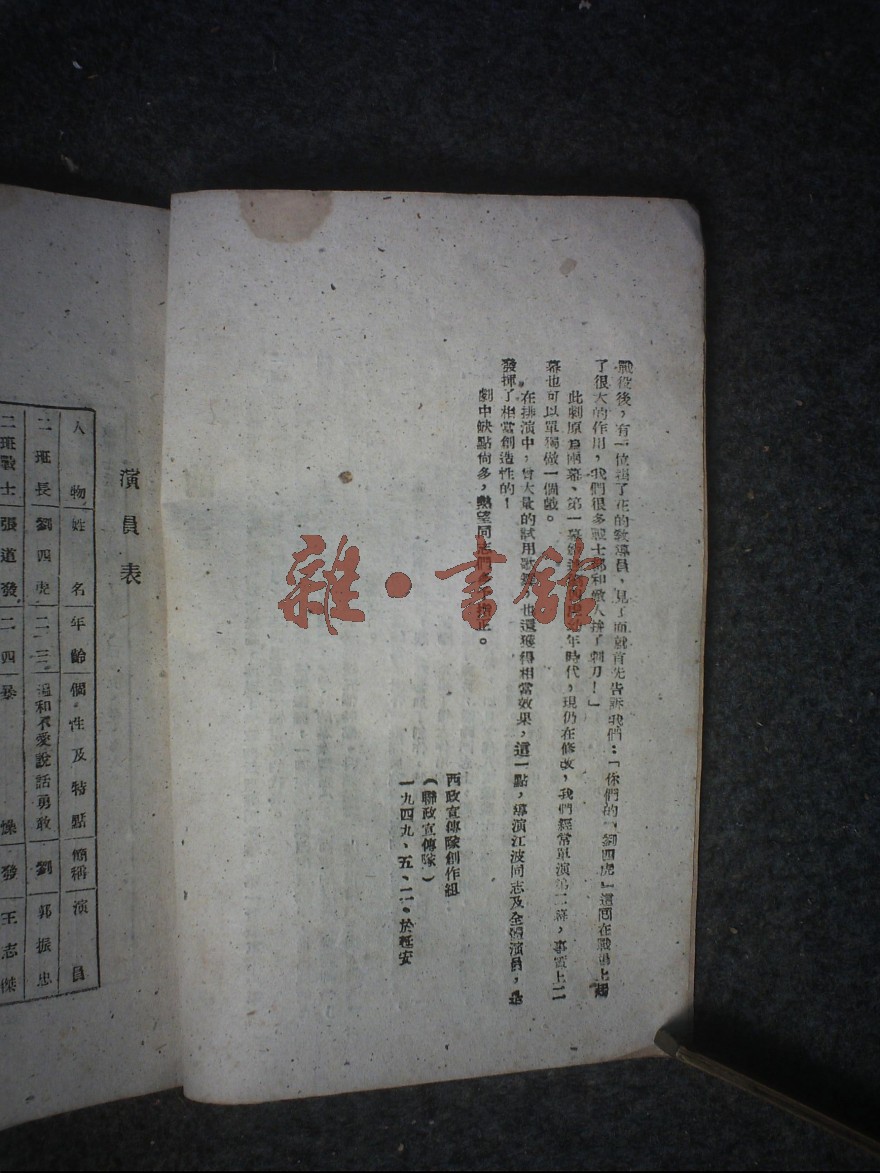 戰役後，有一位掛了花的敎導員、見了面就首先告訴我們：「你們的『劉四虎』這回在戰場上起
了很大的作用，我們很多戰士都和敵人拚了刺刀！」
此劇原為兩幕、第一幕 年時代，現仍在修改，我們經常單演第二幕，事實上二
幕也可以單獨做一個戲。
在排演中，曾大量的試用歌 也還獲得相當效果，這一點，導演江波同志及全體演員，是
發揮了相當創造性的！
劇中缺點尙多，熱望同志們多予指正。
西政宣傳隊創作組
（聯政宣傳隊）
一九四九、五、二。於延安
演員表
人物 姓名 年齡 個性及特點 簡稱 演員
二班長 劉四虎 二三 溫和不愛說話勇敢 劉 郭振忠
二班戰士 張道發 二四 暴燥 發 王志傑
雜·書館